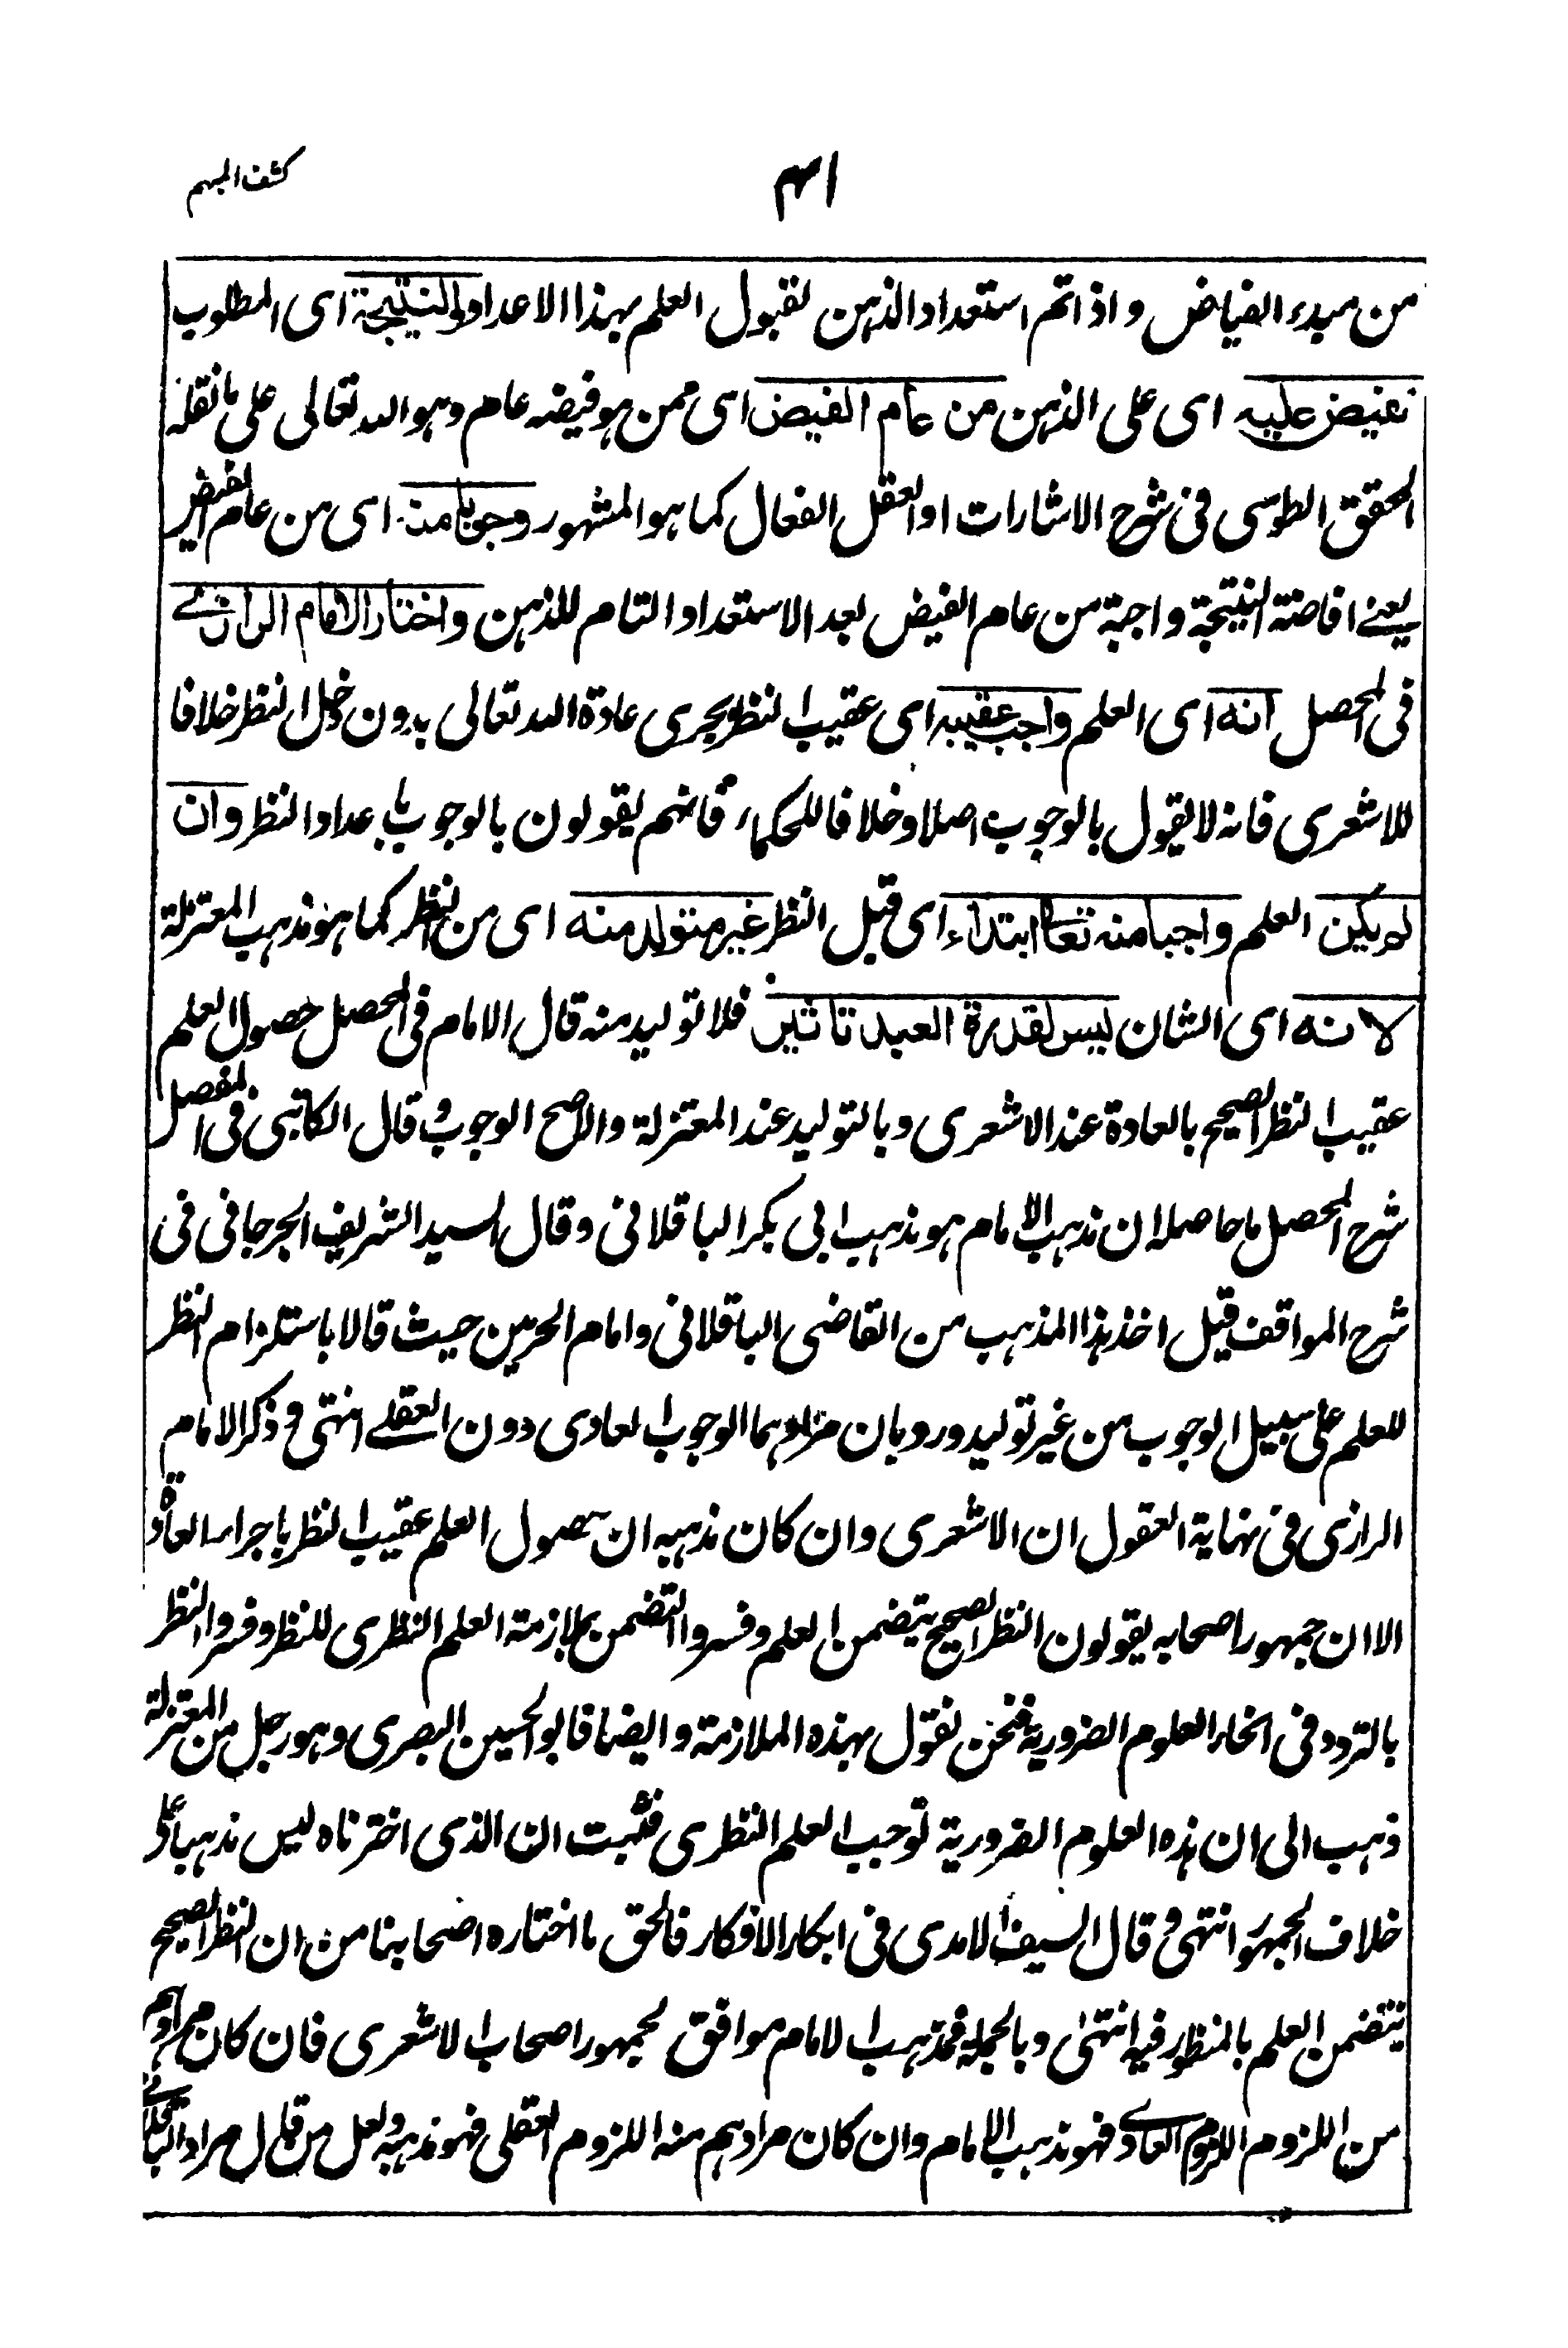 كشف المبهم
٣١
من مبدء الفياض و اذا تم استعداد الذهن لقبول العلم بهذا الاعداد والنتيجة اى المطلوب
تفيض عليه اى على الذهن من عام الفيض اى ممن هو فيضه عام وهو الله تعالى على ما نقله
المحقق الطوسى فى شرح الاشارات او العقل الفعال كما هو المشهور وجوبا منه اى من عام الفيض
يعنے افاضته النتيجة واجبة من عام الفيض بعد الاستعداد التام للذهن واختار الامام الرازے
فى المحصل انه اى العلم واجب عقيبه اى عقيب النظر بجرى عادة الله تعالى بدون دخل النظر خلافا
للاشعرى فانه لا يقول بالوجوب اصلا وخلافا للحكماء فانهم يقولون بالوجوب باعداد النظر وان
لم يكن العلم واجبا منه تعالى ابتداء اى قبل النظر غير متولد منه اى من النظر كما هو مذهب المعتزلة
لانه اى الشان ليس لقدرة العبد تاثير فلا توليد منه قال الامام فى المحصل حصول العلم
عقيب النظر الصحيح بالعادة عند الاشعرى وبالتوليد عند المعتزلة والاصح الوجوب و قال الكاتبى فى المفصل
شرح المحصل ما حاصله ان مذهب الامام هو مذهب ابى بكر الباقلانى وقال السيد الشريف الجرجانى فى
شرح المواقف قيل اخذ هذا المذهب من القاضى الباقلانى وامام الحرمين حيث قالا باستلزام النظر
للعلم على سبيل الوجوب من غير توليد ورد بان مرادهما الوجوب العادى دون العقلے انتهى و ذكر الامام
الرازى فى نهاية العقول ان الاشعرى وان كان مذهبه ان حصول العلم عقيب النظر باجراء العادة
الا ان جمهور اصحابه يقولون النظر الصحيح يتضمن العلم وفسروا التضمن بملازمة العلم النظرى للنظر وفسروا النظر
بالتردد فى انحاء العلوم الضرورية فنحن نقول بهذه الملازمة وايضا فابو الحسين البصرى وهو رجل من المعتزلة
ذهب الى ان هذه العلوم الضرورية توجب العلم النظرى فثبت ان الذى اخترناه ليس مذهبا على
خلاف الجمهور انتهى و قال السيف الامدى فى ابكار الافكار فالحق ما اختاره اصحابنا من ان النظر الصحيح
يتضمن العلم بالمنظور فيه انتهىٰ وبالجملة فمذهب الامام موافق لجمهور اصحاب الاشعرى فان كان مرادهم
من اللزوم اللزوم العادے فهو مذهب الامام وان كان مرادهم منه اللزوم العقلى فهو مذهبه ولعل من قال ان مراد الباقلانے